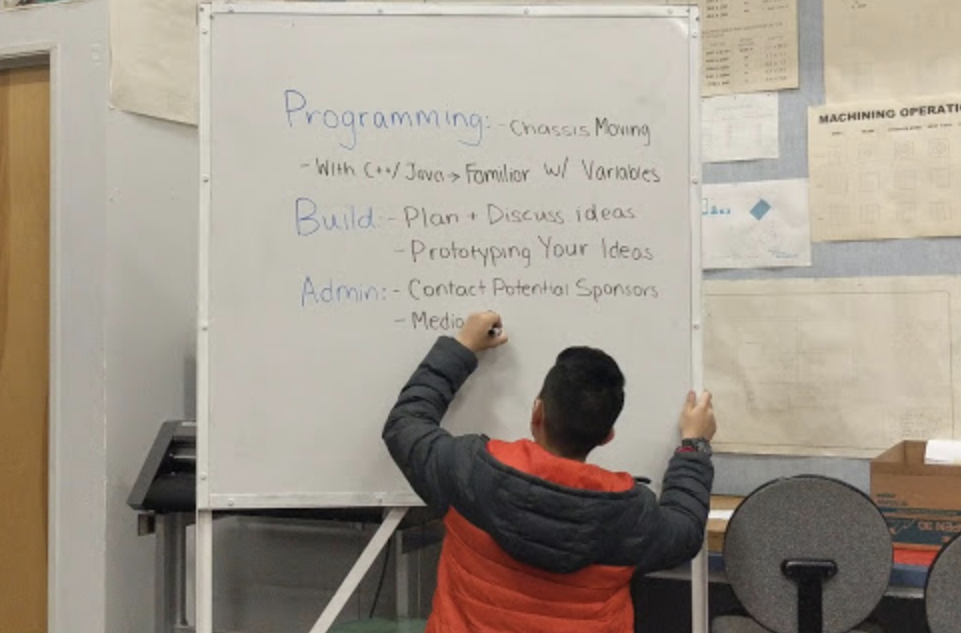 Programming: - Chassis Moving
- With C++/Java → Familiar w/ Variables
Build: - Plan + Discuss ideas
- Prototyping Your Ideas
Admin: - Contact Potential Sponsors
- Media
MACHINING OPERATIO